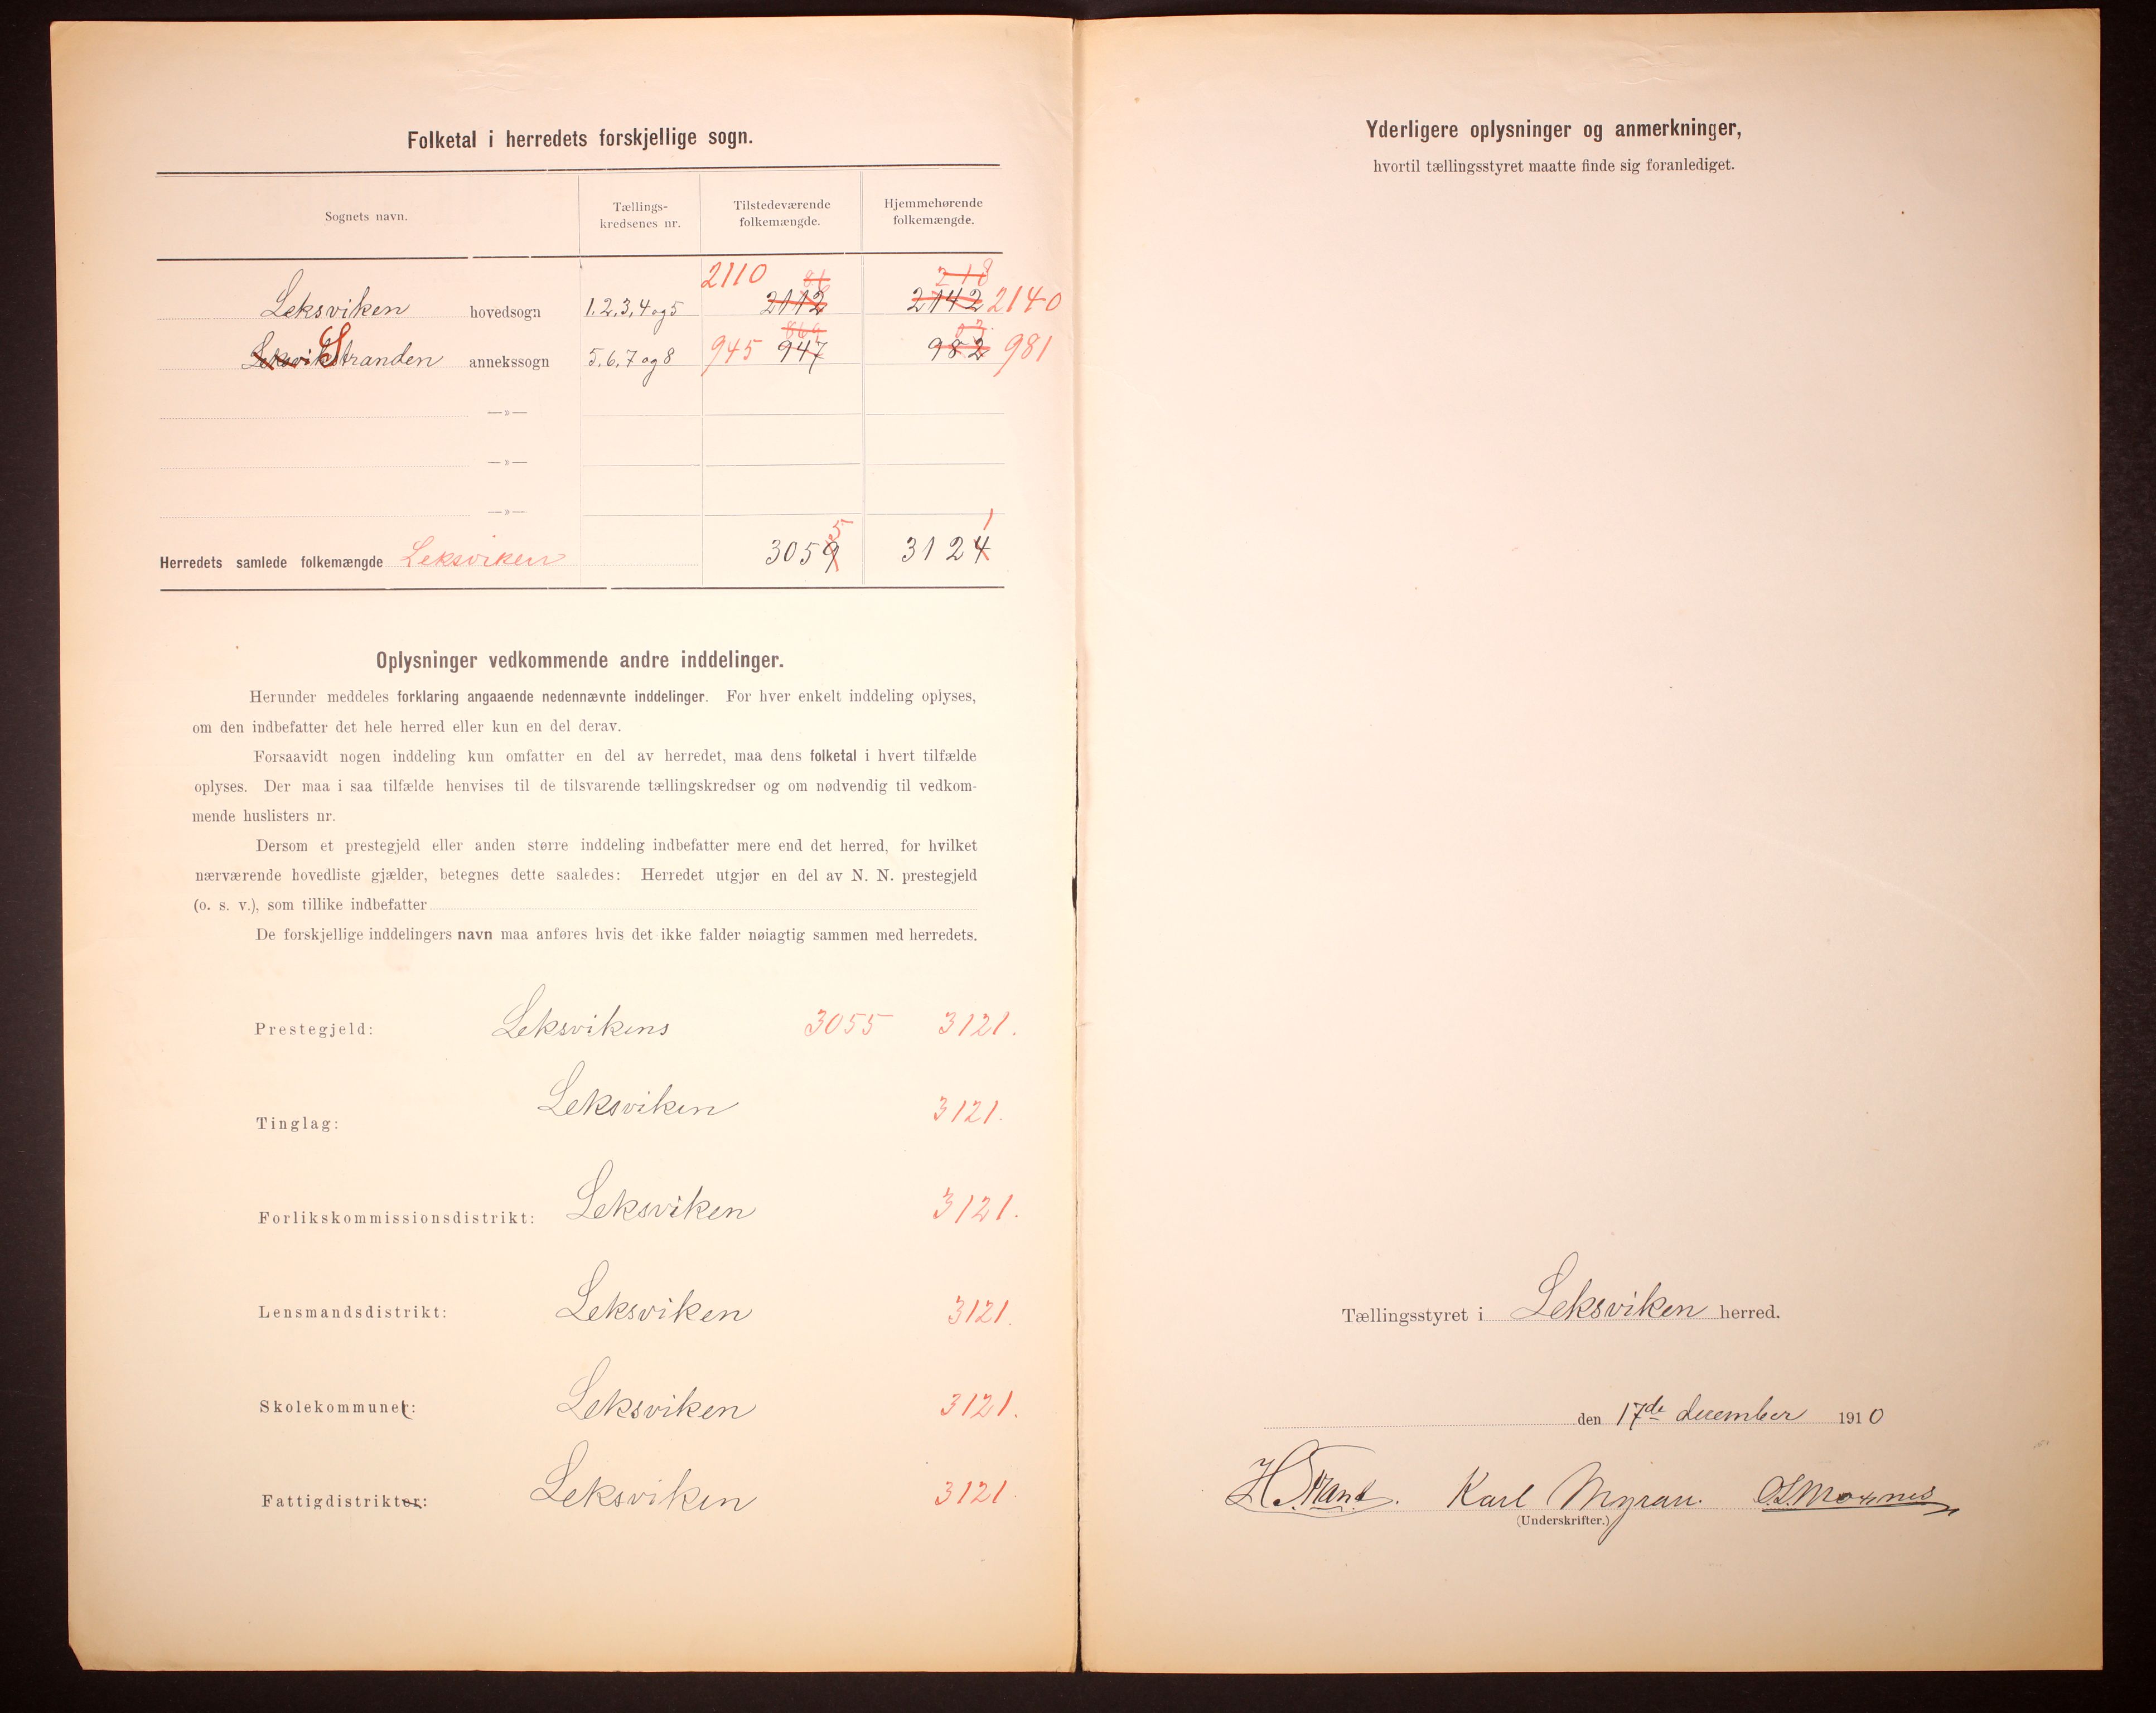 Folketal i herredets forskjellige sogn.
Sognets navn.
Tællings-
kredsenes nr.
Tilstedeværende
folkemængde.
Hjemmehørende
folkemængde.
Leksviken hovedsogn 1.2.3.4 og 5 2110 2112 2142 2140
Stranden annekssogn 5.6.7 og 8 945 947 982 981
—»—
—»—
—»—
Herredets samlede folkemængde Leksviken 3059 5 3124 1
Oplysninger vedkommende andre inddelinger.
Herunder meddeles forklaring angaaende nedennævnte inddelinger. For hver enkelt inddeling oplyses,
om den indbefatter det hele herred eller kun en del derav.
Forsaavidt nogen inddeling kun omfatter en del av herredet, maa dens folketal i hvert tilfælde
oplyses. Der maa i saa tilfælde henvises til de tilsvarende tællingskredser og om nødvendig til vedkom-
mende huslisters nr.
Dersom et prestegjeld eller anden større inddeling indbefatter mere end det herred, for hvilket
nærværende hovedliste gjælder, betegnes dette saaledes: Herredet utgjør en del av N. N. prestegjeld
(o. s. v.), som tillike indbefatter
De forskjellige inddelingers navn maa anføres hvis det ikke falder nøiagtig sammen med herredets.
Prestegjeld: Leksvikens 3055 3121.
Tinglag: Leksviken 3121.
Forlikskommissionsdistrikt: Leksviken 3121.
Lensmandsdistrikt: Leksviken 3121.
Skolekommuner: Leksviken 3121.
Fattigdistrikter: Leksviken 3121.
Yderligere oplysninger og anmerkninger,
hvortil tællingsstyret maatte finde sig foranlediget.
Tællingsstyret i Leksviken herred.
den 17de december 1910
H Strand. Karl Myran.
(Underskrifter.)